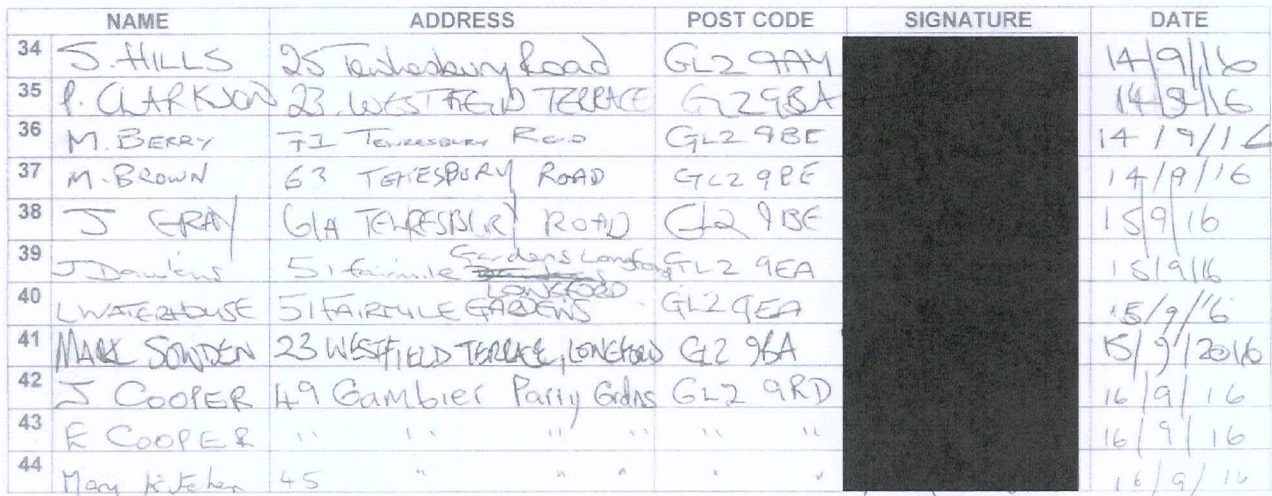 NAME ADDRESS POST CODE SIGNATURE DATE
34 S. HILLS 25 Tewkesbury Road GL2 9AY 14/9/16
35 P. CLARKSON 23 WESTFIELD TERRACE GL2 9BA 14/9/16
36 M. BERRY 71 TEWKESBURY ROAD GL2 9BE 14/9/16
37 M. BROWN 63 TEKESBURY ROAD GL2 9BE 14/9/16
38 J GRAY 61A TEWKESBURY ROAD GL2 9BE 15/9/16
39 J Dawkins 51 fairmile Gardens Longford GL2 9EA 15/9/16
40 L WATERHOUSE 51 FAIRMILE GARDENS LONGFORD GL2 9EA 15/9/16
41 MARK SOWDEN 23 WESTFIELD TERRACE, LONGFORD GL2 9BA 15/9/2016
42 J COOPER 49 Gambier Parry Grdns GL2 9RD 16/9/16
43 E COOPER " " " " " " 16/9/16
44 Mary Kitchen 45 " " " " " 16/9/16